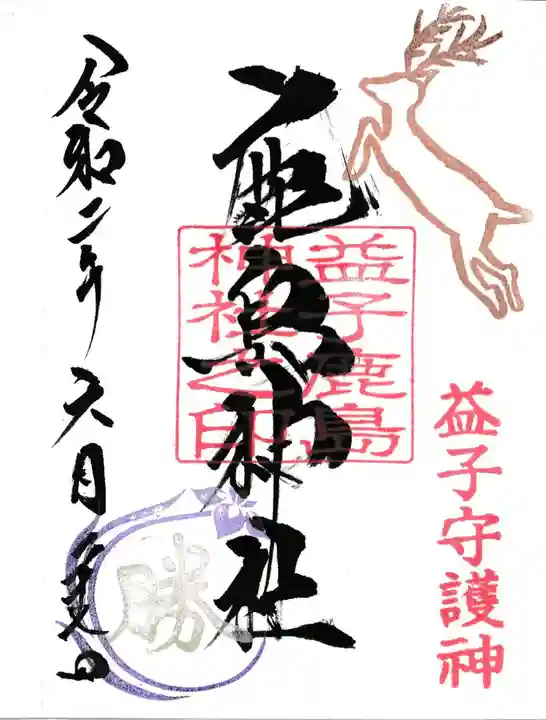 益子守護神
鹿島神社
益子鹿島
神社之印
令和二年六月
勝